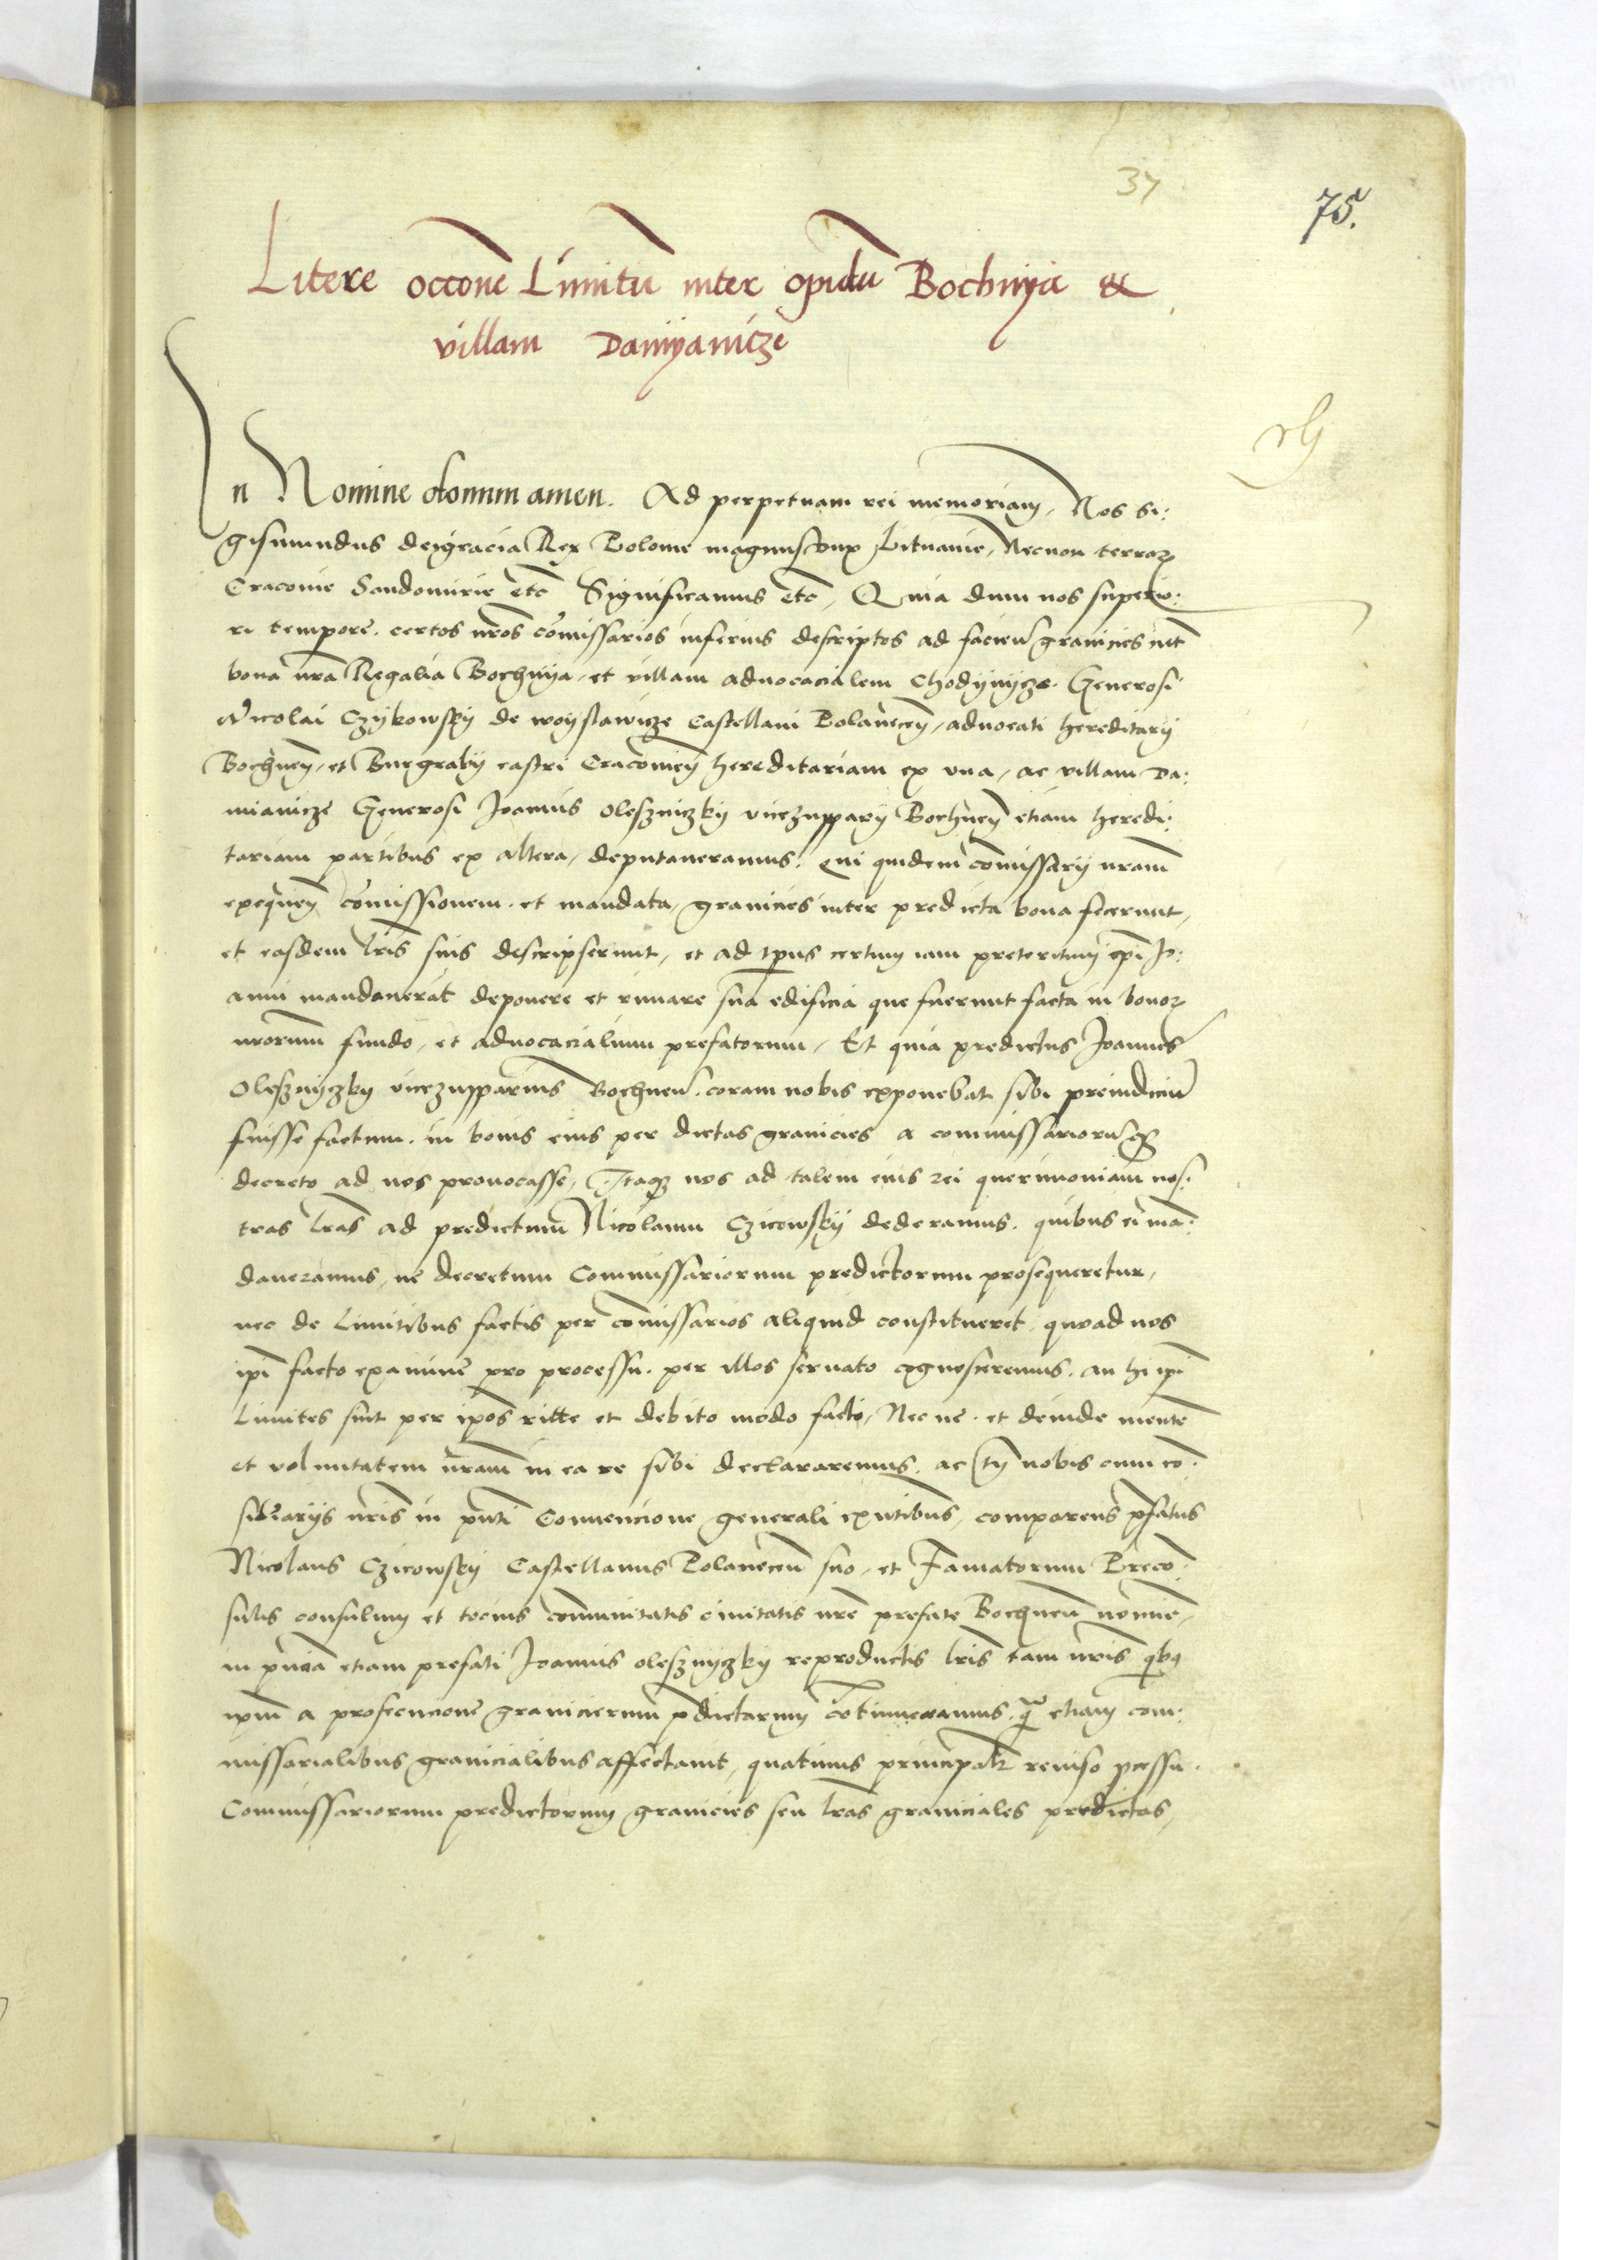 37
75.
Litere occone Limitu inter opidu Bochnya &
villam Damyanicze
In Nomine domini amen. Ad perpetuam rei memoriam, Nos Si:
gismundus dei gracia Rex Polonie magnus dux Lituanie, Necnon terrarz
Cracovie Sandomirie etc Significamus etc, Quia dum nos superio:
ri tempore certos nros comissarios inferius descriptos ad faciend granicies int
bona nra Regalia Bochnya, et villam advocacialem Chodynycze Generosi
Nicolai Czykowsky de woyslawicze Castellani Polanecen, advocati hereditarij
Bochnen, et Burgrabij castri Cracovien hereditariam ex una, ac villam Da:
mianicze Generosi Joannis Oleszniczky vicezupparij Bochnen etiam heredi:
tariam partibus ex altera, deputaueramus. Qui quidem comissarij nram
exequen comissionem et mandata, granicies inter predicta bona fecerunt,
et easdem lris suis descripserunt, et ad tpus certum iam preteritum ipi Jo:
anni mandauerat deponere et ruinare sua edificia que fuerunt facta in bonorz
nrorum fundo, et advocacialium prefatorum, Et quia predictus Joannes
Olesznyczky vicezupparius Bochnen coram nobis exponebat sibi preiudiciu
fuisse factum in bonis eius per dictas granicies a commissarioru
decreto ad nos prouocasse, Itaqz nos ad talem eius rei querimoniam nos:
tras lras ad predictum Nicolaum Czicowsky dederamus quibus ei ma:
daueramus, ne decretum Commissariorum predictorum prosequeretur,
nec de Limitibus factis per comissarios aliquid constitueret quoad nos
ipi facto examine pro processu per illos seruato cognosceremus an hi ipi
Limites sint per ipos ritte et debito modo facti, Nec ne et deinde mente
et voluntatem nram in ea re sibi declararemus, ac tn nobis cum co:
siliarijs nris in pnti Conuencione generali exntibus, comparens pfatus
Nicolaus Czicowsky Castellanus Polanecen suo, et Famatorum Preco:
sulis consulum et tocius communitatis ciuitatis nre prefate Bochnen nomine,
in pncia etiam prefati Joannis olesznyczky reproductis lris tam nris qbq
ipm a prosecucione granicierum pdictarum cotinueramus, q etiam com:
missarialibus granicialibus affectauit, quatinus principalr reuiso pcessu
Commissariorum predictorum granicies seu lras graniciales predictas,